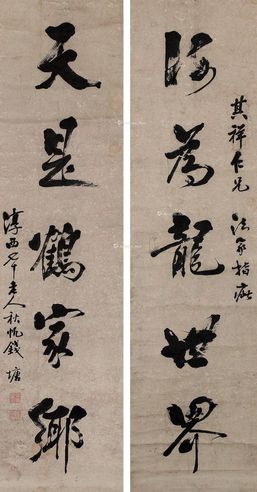 其祥仁兄 法家指疵
海為龍世界
天是鶴家鄉
淳西七十老人秋帆錢塘